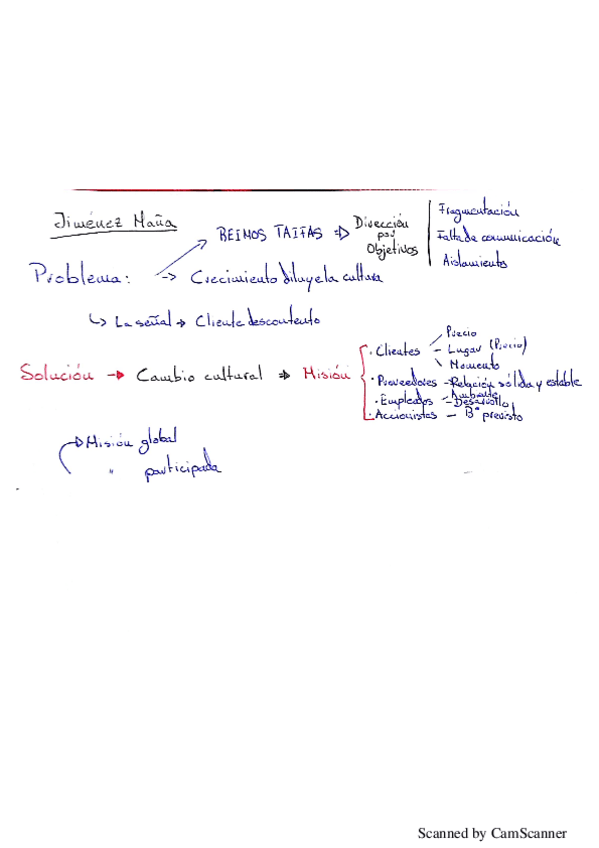 Jiménez Maña
REINOS TAIFAS ⇒ Dirección por Objetivos
Fragmentación
Falta de comunicación
Aislamiento
Problema: → Crecimiento diluye la cultura
↳ La señal → Cliente descontento
Solución → Cambio cultural ⇒ Misión
· Clientes
Precio
– Lugar (Precio)
Momento
· Proveedores – Relación sólida y estable
· Empleados – Ambiente
– Desarrollo
· Accionistas – Bº previsto
→ Misión global
" participada
Scanned by CamScanner